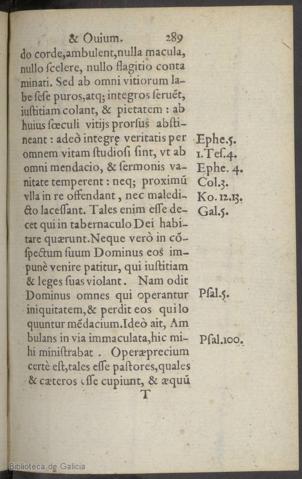 & Ouium. 289
do corde,ambulent,nulla macula,
nullo scelere, nullo flagitio conta
minati. Sed ab omni vitiorum la-
be sese puros,atq; integros seruẽt,
iustitiam colant, & pietatem : ab
huius sœculi vitijs prorsus absti-
neant : adeò integrę veritatis per
omnem vitam studiosi sint, vt ab
omni mendacio, & sermonis va-
nitate temperent : neq; proximũ
vlla in re offendant, nec maledi-
cto lacessant. Tales enim esse de-
cet qui in tabernaculo Dei habi-
tare quærunt.Neque verò in cõ-
spectum suum Dominus eos im-
punè venire patitur, qui iustitiam
& leges suas violant. Nam odit
Dominus omnes qui operantur
iniquitatem,& perdit eos qui lo
quuntur mẽdacium.Ideò ait, Am
bulans in via immaculata,hic mi-
hi ministrabat . Operæprecium
certè est,tales esse pastores,quales
& cæteros esse cupiunt, & æquũ
T
Ephe.5.
1.Tes.4.
Ephe. 4.
Col.3.
Ko.12.13.
Gal.5.
Psal.5.
Psal.100.
Biblioteca de Galicia